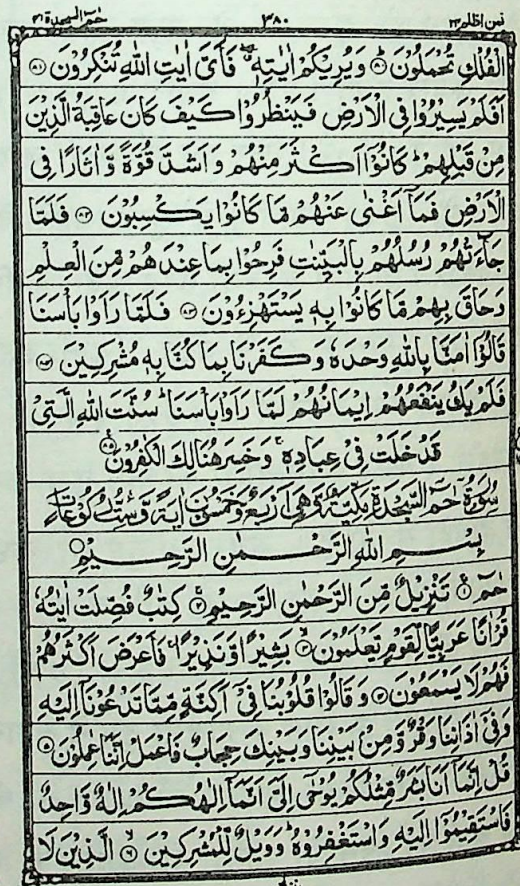 فمن اظلم ۲۴ ۳۸۰ حٰمٓ السجدة ۴۱
الْفُلْكِ تُحْمَلُوْنَ ۸۰ وَيُرِيْكُمْ اٰيٰتِهٖ ۖ فَاَىَّ اٰيٰتِ اللّٰهِ تُنْكِرُوْنَ ۸۱
اَفَلَمْ يَسِيْرُوْا فِى الْاَرْضِ فَيَنْظُرُوْا كَيْفَ كَانَ عَاقِبَةُ الَّذِيْنَ
مِنْ قَبْلِهِمْ ؕ كَانُوْٓا اَكْثَرَ مِنْهُمْ وَاَشَدَّ قُوَّةً وَّاٰثَارًا فِى
الْاَرْضِ فَمَآ اَغْنٰى عَنْهُمْ مَّا كَانُوْا يَكْسِبُوْنَ ۸۲ فَلَمَّا
جَآءَتْهُمْ رُسُلُهُمْ بِالْبَيِّنٰتِ فَرِحُوْا بِمَا عِنْدَهُمْ مِّنَ الْعِلْمِ
وَحَاقَ بِهِمْ مَّا كَانُوْا بِهٖ يَسْتَهْزِءُوْنَ ۸۳ فَلَمَّا رَاَوْا بَاْسَنَا
قَالُوْٓا اٰمَنَّا بِاللّٰهِ وَحْدَهٗ وَكَفَرْنَا بِمَا كُنَّا بِهٖ مُشْرِكِيْنَ ۸۴
فَلَمْ يَكُ يَنْفَعُهُمْ اِيْمَانُهُمْ لَمَّا رَاَوْا بَاْسَنَا ؕ سُنَّتَ اللّٰهِ الَّتِىْ
قَدْ خَلَتْ فِىْ عِبَادِهٖ ۚ وَخَسِرَ هُنَالِكَ الْكٰفِرُوْنَ ۸۵
سُوْرَةُ حٰمٓ السَّجْدَةِ مَكِّيَّةٌ وَّهِىَ اَرْبَعٌ وَّخَمْسُوْنَ اٰيَةً وَّسِتُّ رُكُوْعَاتٍ
بِسْمِ اللّٰهِ الرَّحْمٰنِ الرَّحِيْمِ
حٰمٓ ۱ تَنْزِيْلٌ مِّنَ الرَّحْمٰنِ الرَّحِيْمِ ۲ كِتٰبٌ فُصِّلَتْ اٰيٰتُهٗ
قُرْاٰنًا عَرَبِيًّا لِّقَوْمٍ يَّعْلَمُوْنَ ۳ بَشِيْرًا وَّنَذِيْرًا ۚ فَاَعْرَضَ اَكْثَرُهُمْ
فَهُمْ لَا يَسْمَعُوْنَ ۴ وَقَالُوْا قُلُوْبُنَا فِىْٓ اَكِنَّةٍ مِّمَّا تَدْعُوْنَآ اِلَيْهِ
وَفِىْٓ اٰذَانِنَا وَقْرٌ وَّمِنْۢ بَيْنِنَا وَبَيْنِكَ حِجَابٌ فَاعْمَلْ اِنَّنَا عٰمِلُوْنَ ۵
قُلْ اِنَّمَآ اَنَا بَشَرٌ مِّثْلُكُمْ يُوْحٰٓى اِلَىَّ اَنَّمَآ اِلٰهُكُمْ اِلٰهٌ وَّاحِدٌ
فَاسْتَقِيْمُوْٓا اِلَيْهِ وَاسْتَغْفِرُوْهُ ؕ وَوَيْلٌ لِّلْمُشْرِكِيْنَ ۶ الَّذِيْنَ لَا